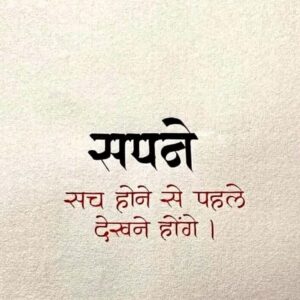 सपने
सच होने से पहले
देखने होंगे।